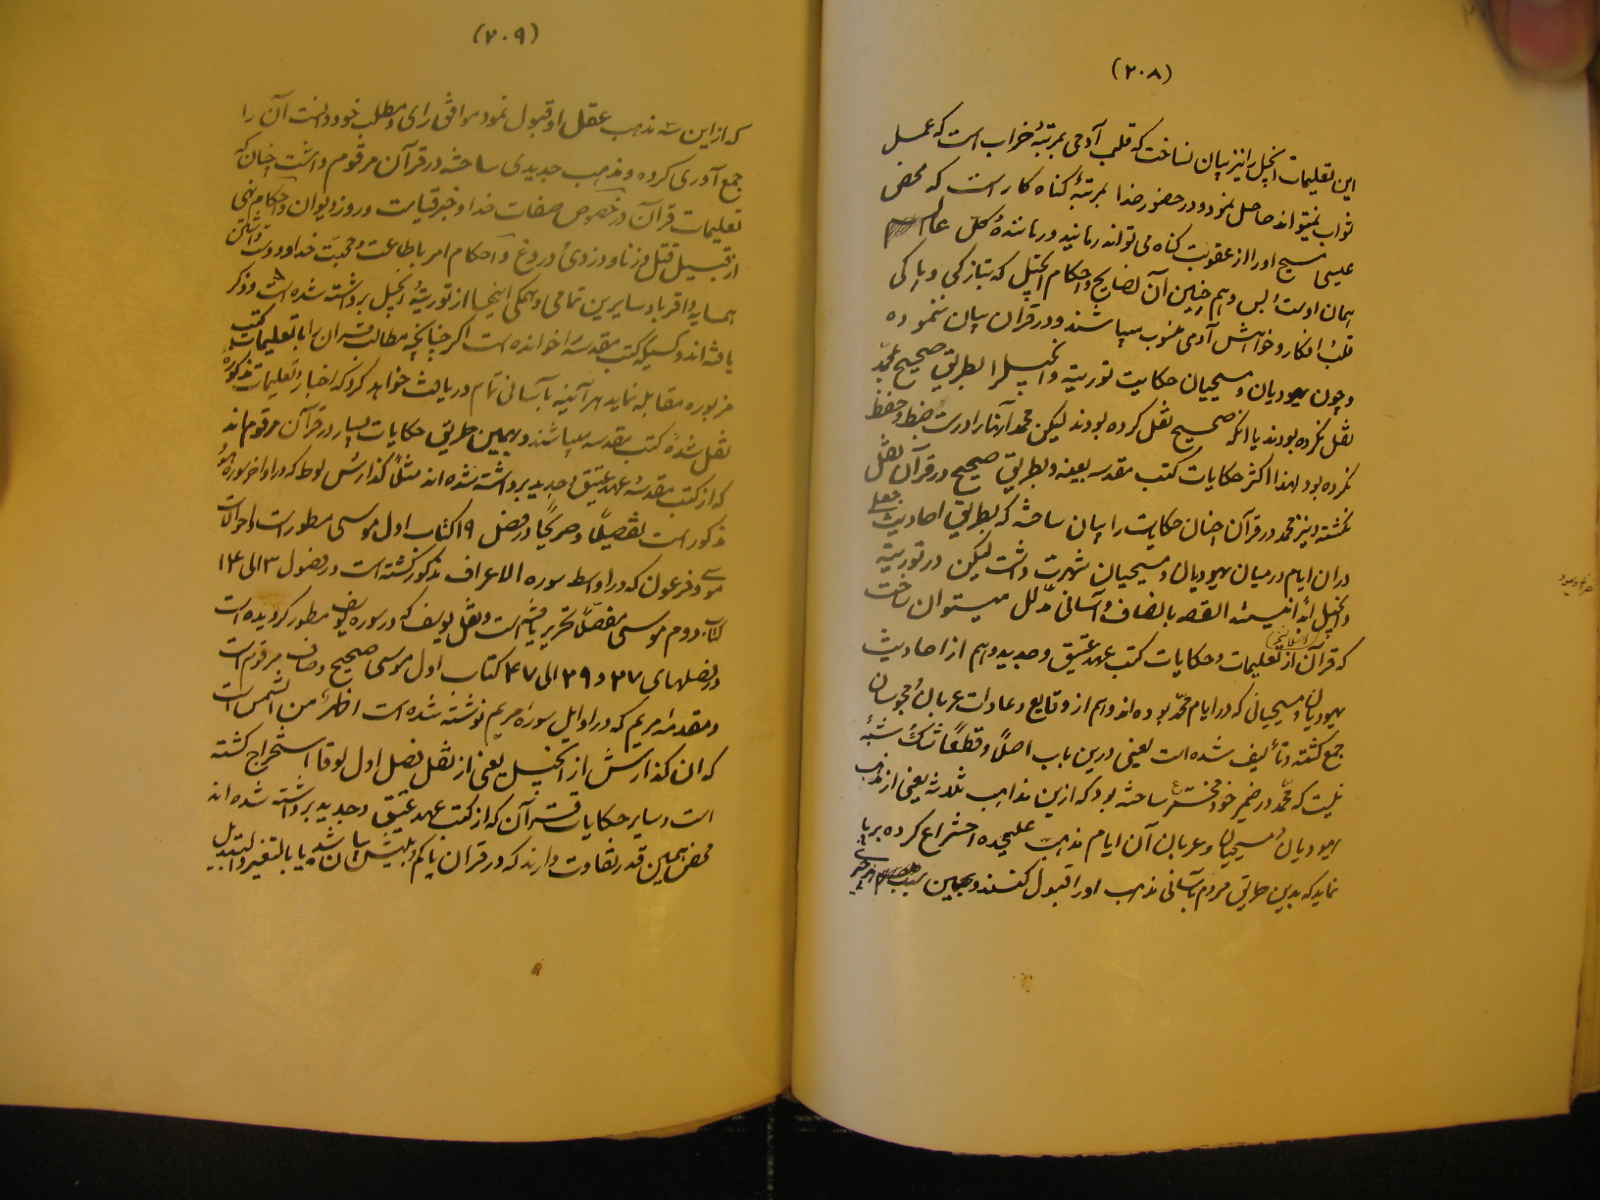 (۲۰۸)
این تعلیمات انجیل را نیز بیان نساخت که قلب آدمی بمرتبهٔ خراب است که عمل
ثواب نمیتواند حاصل نمود و در حضور خدا بمرتبهٔ گناه کار است که محض
عیسی مسیح او را از عقوبت گناه می تواند رهانید و رهانندهٔ کل عالم
همان اوست و بس و هم چنین آن نصایح و احکام انجیل که بتازگی و پاکی
قلب و افکار و خواهش آدمی منسوب میباشند و در قرآن بیان ننموده
و چون یهودیان و مسیحیان حکایت توریته و انجیل را بطریق صحیح بمحمد
نقل نکرده بودند یا آنکه صحیح نقل کرده بودند لیکن محمد آنها را درست ضبط و حفظ
نکرده بود لهذا اکثر حکایات کتب مقدسه بعینه و بطریق صحیح در قرآن نقل
نگشته و نیز محمد در قرآن چنان حکایت را بیان ساخته که بطریق احادیث جعلی
در ان ایام در میان یهودیان و مسیحیان شهرت داشت لیکن در توریته
و انجیل لله القصه بانصاف و آسانی مدلل میتوان ساخت
که قرآن از تعلیمات و حکایات کتب عهد عتیق و جدید و هم از احادیث
یهودیان و مسیحیانی که در ایام محمد بوده اند و هم از وقایع و عادات عربان و مجوسان
جمع گشته و تألیف شده است یعنی درین باب اصلاً و قطعاً شک و شبهٔ
نیست که محمد در ضمیر خود مخترع ساخته بود که ازین مذاهب ثلاثه یعنی از مذهب
یهودیان و مسیحیان و عربان آن ایام مذهب علیحده اختراع کرده برپا
نماید که بدین طریق مردم بآسانی مذهب او را قبول کنند و بهمین سبب هر چیزی
(۲۰۹)
که از این سه مذهب عقل او قبول نمود موافق رای و مطلب خود دانست آن را
جمع آوری کرده و مذهب جدیدی ساخته در قرآن مرقوم داشت چنان که
تعلیمات قرآن در خصوص صفات خدا و خبر قیامت و روز دیوان و احکام نهی
از قبیل قتل و زنا و دزدی و دروغ و احکام امر باطاعت و محبت خدا و دوست داشتن
همسایه و اقربا و سایرین تمامی و همگی اینها از توریته و انجیل برداشته شده است و ذکر
یافته اند و کسیکه کتب مقدسه را خوانده است اگر چنانچه مطالب قران را با تعلیمات کتب
مزبوره مقابله نماید هر آئینه بآسانی تمام دریافت خواهد کرد که اخبار و تعلیمات مذکوره
نقل شدهٔ کتب مقدسه میباشند و بهمین طریق حکایات بسیار در قرآن مرقوم اند
که از کتب مقدسهٔ عهد عتیق و جدید برداشته شده اند مثلاً گذارش لوط که در اواخر سوره هود
مذکور است تفصیلاً و صریحاً در فصل ۱۹ کتاب اول موسی مسطور است و احوالات
موسی و فرعون که در اواسط سوره الاعراف مذکور گشته است در فصول ۳ الی ۱۴
کتاب دوم موسی مفصلاً تحریر یافته است و نقل یوسف که در سوره یوسف مسطور گردیده است
در فصلهای ۳۷ و ۳۹ الی ۴۷ کتاب اول موسی صحیح و صاف مرقوم است
و مقدمهٔ مریم که در اوایل سورهٔ مریم نوشته شده است اظهر من الشمس است
که ان گذارش از انجیل یعنی از نقل فصل اول لوقا استخراج گشته
است و سایر حکایات قرآن که از کتب عهد عتیق و جدید برداشته شده اند
محض همین قدر تفاوت دارند که در قرآن یا کم و بیش بیان شده یا با تغییر و تبدیل